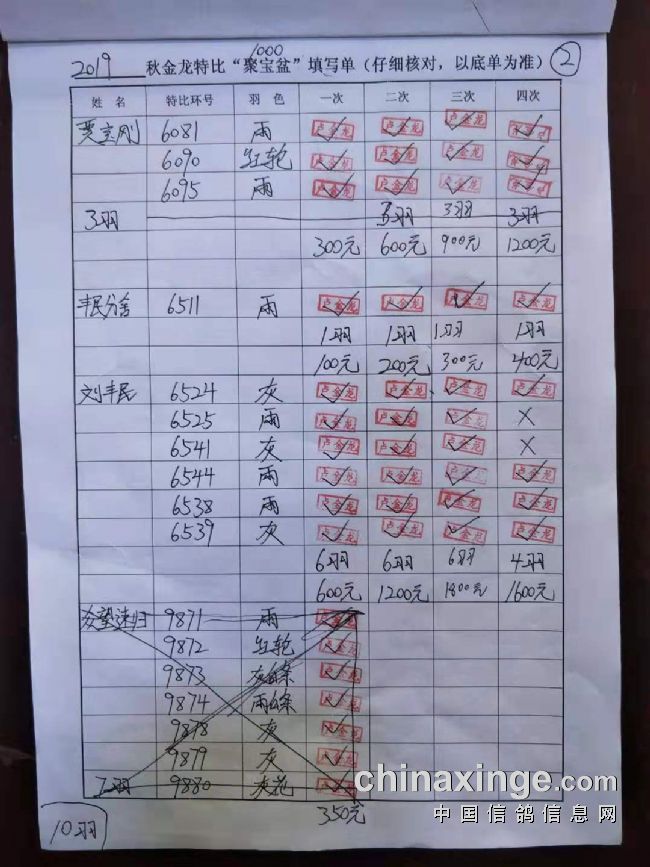 1000
2019 秋金龙特比“聚宝盆”填写单（仔细核对，以底单为准） 2
姓 名 特比环号 羽 色 一次 二次 三次 四次
贾立刚 6081 雨 卢金龙 卢金龙 卢金龙
6090 红轮 卢金龙 卢金龙 卢金龙
6095 雨 卢金龙 卢金龙 卢金龙
3羽 3羽 3羽 3羽
300元 600元 900元 1200元
丰民分舍 6511 雨 卢金龙 卢金龙 卢金龙 卢金龙
1羽 1羽 1羽 1羽
100元 200元 300元 400元
刘丰民 6524 灰 卢金龙 卢金龙 卢金龙 卢金龙
6525 雨 卢金龙 卢金龙 卢金龙 X
6541 灰 卢金龙 卢金龙 卢金龙 X
6544 雨 卢金龙 卢金龙 卢金龙 卢金龙
6538 雨 卢金龙 卢金龙 卢金龙 卢金龙
6539 灰 卢金龙 卢金龙 卢金龙 卢金龙
6羽 6羽 6羽 4羽
600元 1200元 1800元 1600元
众望速归 9871 雨 卢金龙
9872 红轮 卢金龙
9873 灰白条 卢金龙
9874 雨白条 卢金龙
9878 灰 卢金龙
9879 灰 卢金龙
7羽 9880 灰花 卢金龙
350元
10羽
chinaxinge.com
中国信鸽信息网